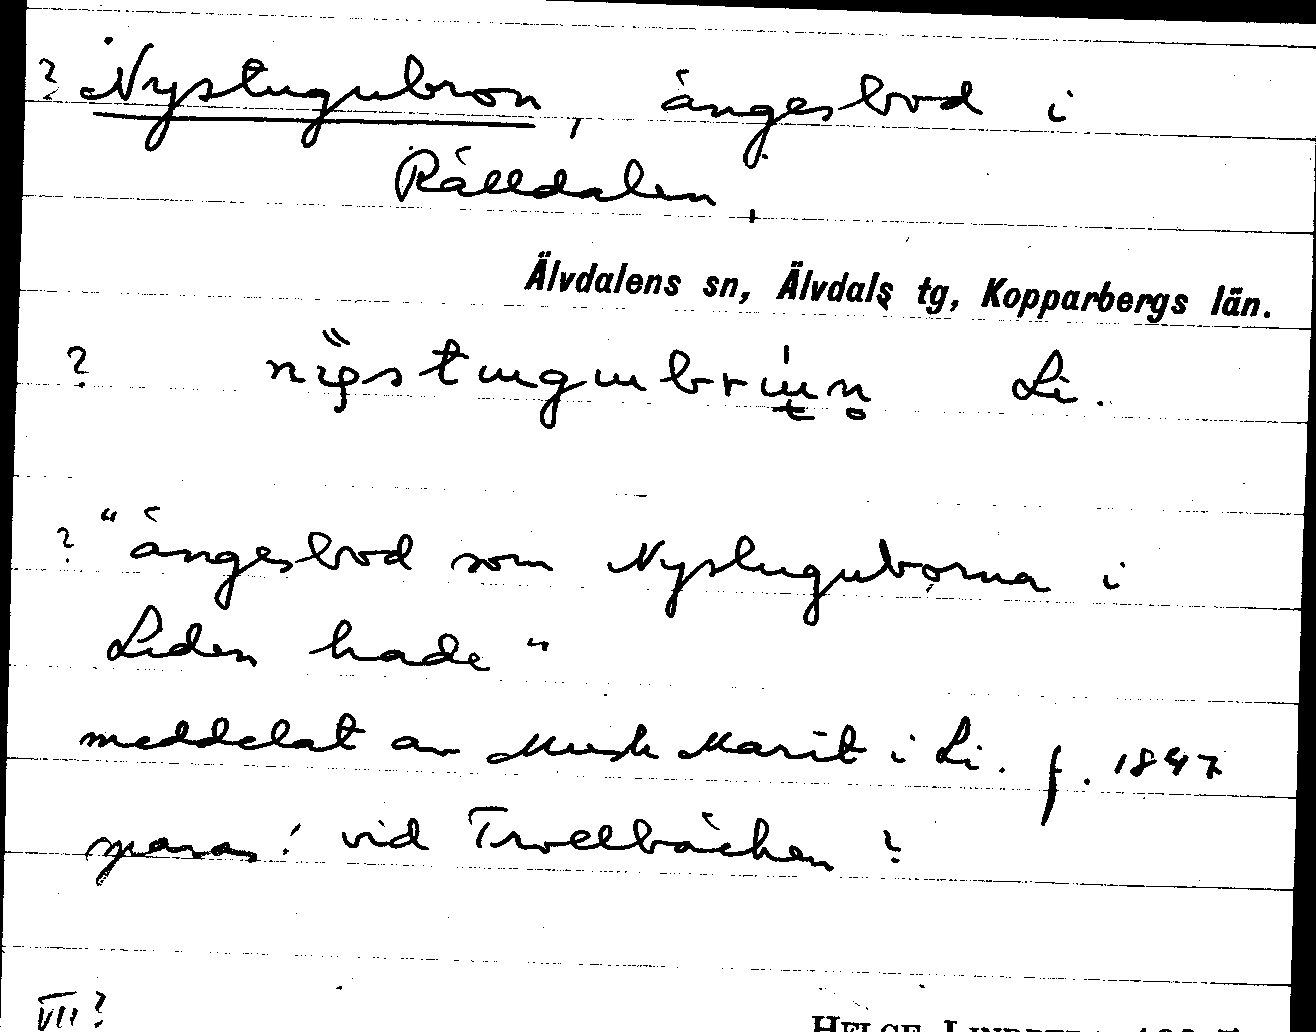 ? Nystugubron, ängesbod i
Rålldalen,
Älvdalens sn, Älvdals tg, Kopparbergs län.
? Li.
? "ängesbod som Nystuguborna i
Liden hade"
meddelat av Munk Marit i Li. f. 1847
sparas! vid Trollbäcken?
VII?
HELGE